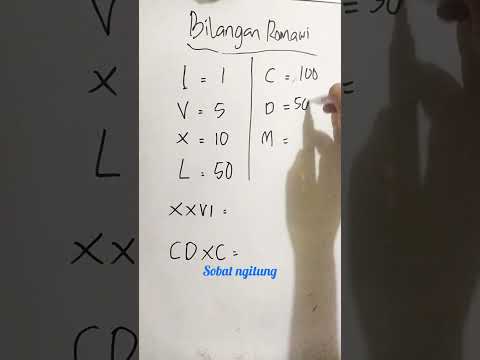 Bilangan Romawi
I = 1
V = 5
X = 10
L = 50
C = 100
D = 50
M =
XXVI =
CDXC =
Sobat ngitung